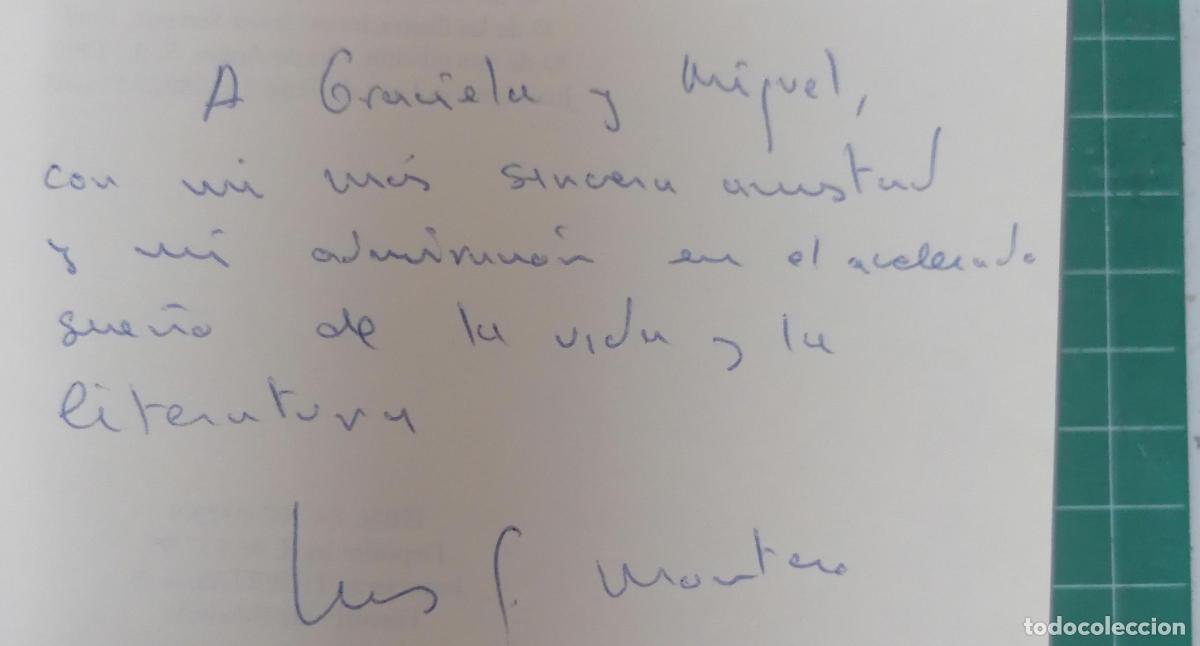 A Graciela y Miguel,
con mi más sincera amistad
y mi admiración en el acelerado
sueño de la vida y la
literatura
Luis G. Montero
todocoleccion